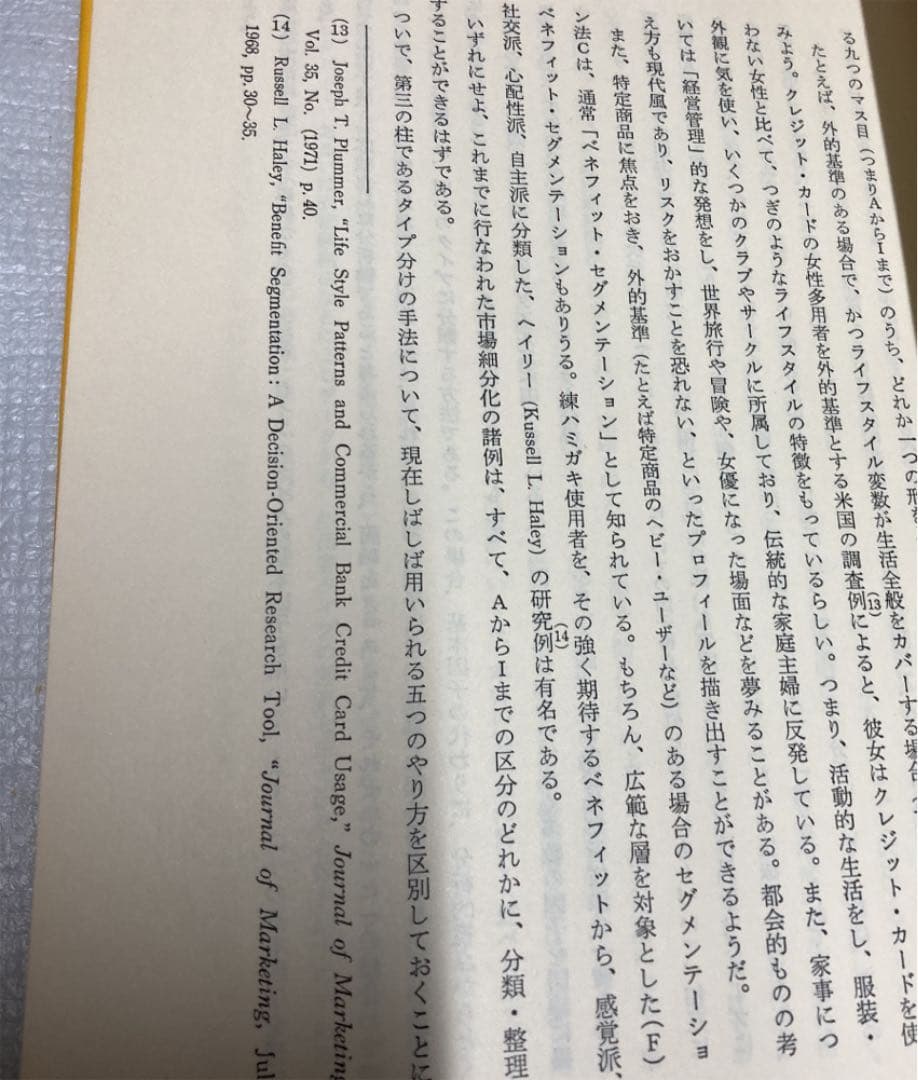 る九つのマス目（つまりAからIまで）のうち、どれか一つの形を
たとえば、外的基準のある場合で、かつライフスタイル変数が生活全般をカバーする場合
みよう。クレジット・カードの女性多用者を外的基準とする米国の調査例(13)によると、彼女はクレジット・カードを使
わない女性と比べて、つぎのようなライフスタイルの特徴をもっているらしい。つまり、活動的な生活をし、服装・
外観に気を使い、いくつかのクラブやサークルに所属しており、伝統的な家庭主婦に反発している。また、家事につ
いては「経営管理」的な発想をし、世界旅行や冒険や、女優になった場面などを夢みることがある。都会的ものの考
え方も現代風であり、リスクをおかすことを恐れない、といったプロフィールを描き出すことができるようだ。
また、特定商品に焦点をおき、外的基準（たとえば特定商品のヘビー・ユーザーなど）のある場合のセグメンテーショ
ン法Cは、通常「ベネフィット・セグメンテーション」として知られている。もちろん、広範な層を対象とした（F）
ベネフィット・セグメンテーションもありうる。練ハミガキ使用者を、その強く期待するベネフィットから、感覚派、
社交派、心配性派、自主派に分類した、ヘイリー（Kussell L. Haley）の研究例(14)は有名である。
いずれにせよ、これまでに行なわれた市場細分化の諸例は、すべて、AからIまでの区分のどれかに、分類・整理
することができるはずである。
ついで、第三の柱であるタイプ分けの手法について、現在しばしば用いられる五つのやり方を区別しておくことに
(13) Joseph T. Plummer, “Life Style Patterns and Commercial Bank Credit Card Usage,” Journal of Marketing
Vol. 35, No. (1971) p. 40.
(14) Russell L. Haley, “Benefit Segmentation: A Decision-Oriented Research Tool, “Journal of Marketing, Jul
1968, pp. 30〜35.